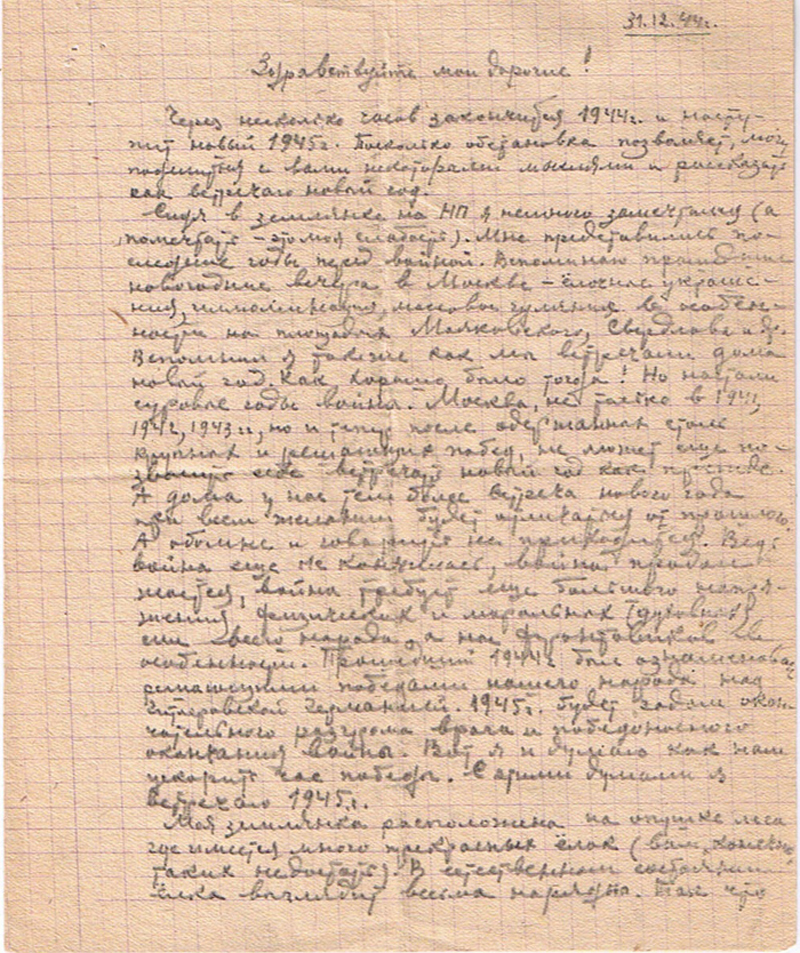 31.12.44г.
Здравствуйте мои дорогие!
Через несколько часов закончится 1944г. и насту-
пит новый 1945г. Поскольку обстановка позволяет, могу
поделиться с вами некоторыми мыслями и рассказать
как встречаю новый год.
Сидя в землянке на НП я немного замечтался (а
помечтать – это моя слабость). Мне представились по-
следние годы перед войной. Вспоминаю прошедшие
новогодние вечера в Москве – ёлочные украше-
ния, иллюминация, массовые гуляния в особен-
ности на площадях Маяковского, Свердлова и др.
Вспомнил я также как мы встречали дома
новый год. Как хорошо было тогда! Но настали
суровые годы войны. Москва, не только в 1941,
1942, 1943 гг, но и теперь после одержанных столь
крупных и решающих побед, не может еще по-
зволить себе встречать новый год как прежде.
А дома у нас тем более встреча нового года
при всем желании будет отличаться от прошлого.
А обо мне и говорить не приходится. Ведь
война еще не кончилась, война продол-
жается, война требует еще большего напря-
жения, физических и моральных (духовных)
сил всего народа, а нас фронтовиков в
особенности. Прошедший 1944г был ознаменован
решающими победами нашего народа над
гитлеровской Германией. 1945г. будет годом окон-
чательного разгрома врага и победоносного
окончания войны. Вот я и думаю как нам
ускорить час победы. С этими думами я
встречаю 1945г.
Моя землянка расположена на опушке леса
где имеется много прекрасных ёлок (вам, конечно
таких не достать). В естественном состоянии
ёлка выглядит весьма нарядно. Так что